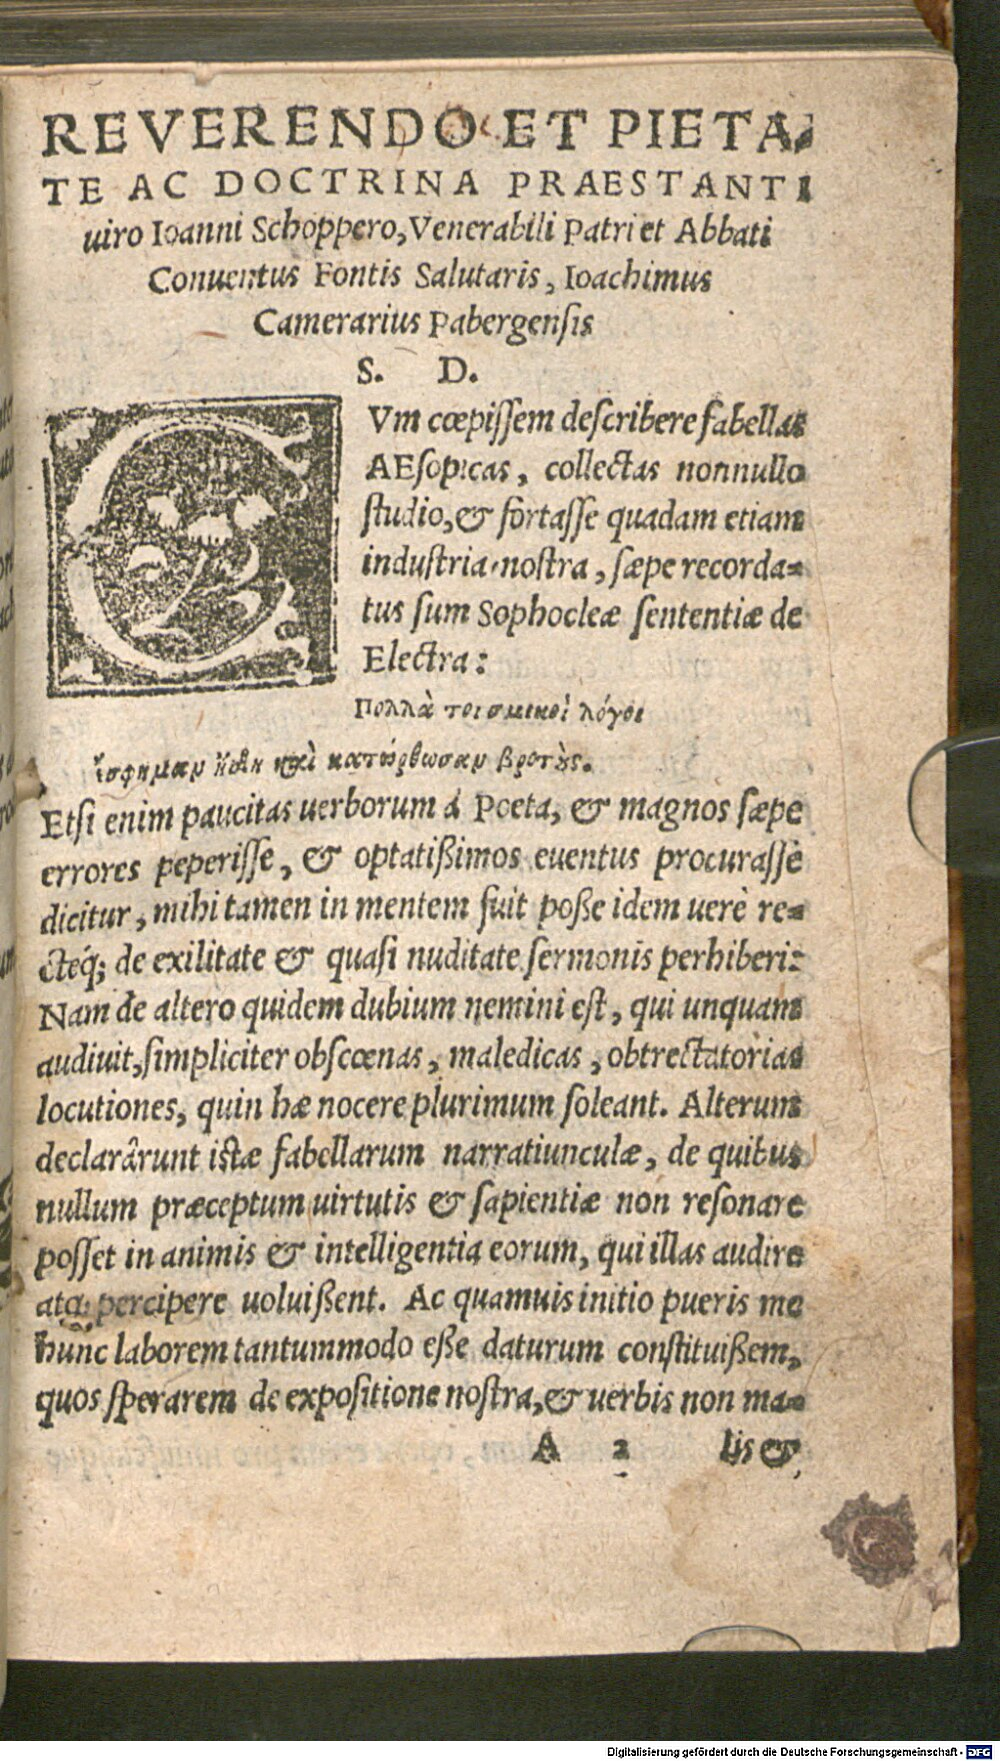 REVERENDO ET PIETA-
TE AC DOCTRINA PRAESTANTI
uiro Ioanni Schoppero, Venerabili Patri et Abbati
Conuentus Fontis Salutaris, Ioachimus
Camerarius Pabergensis
S. D.
CVm cœpissem describere fabellas
AEsopicas, collectas nonnullo
studio, & fortasse quadam etiam
industria nostra, sæpe recorda-
tus sum Sophocleæ sententiæ de
Electra:
Πολλὰ τοι σμικροὶ λόγοι
ἔσφηλαν ἤδη καὶ κατώρθωσαν βροτȣ̀ς.
Etsi enim paucitas uerborum á Poeta, & magnos sæpe
errores peperisse, & optatißimos euentus procurasse
dicitur, mihi tamen in mentem fuit poße idem uerè re-
ctéq; de exilitate & quasi nuditate sermonis perhiberi:
Nam de altero quidem dubium nemini est, qui unquam
audiuit, simpliciter obscœnas, maledicas, obtrectatorias
locutiones, quin hæ nocere plurimum soleant. Alterum
declarârunt istæ fabellarum narratiunculæ, de quibus
nullum præceptum uirtutis & sapientiæ non resonare
posset in animis & intelligentia eorum, qui illas audire
atq; percipere uoluißent. Ac quamuis initio pueris me
hunc laborem tantummodo eße daturum constituißem,
quos sperarem de expositione nostra, & uerbis non ma-
A 2 lis &
Digitalisierung gefördert durch die Deutsche Forschungsgemeinschaft - DFG